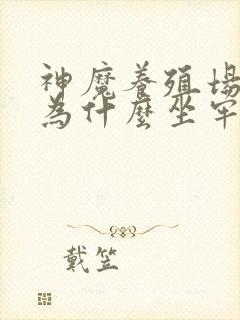 神魔養殖場
為什麼坐牢
戴笠